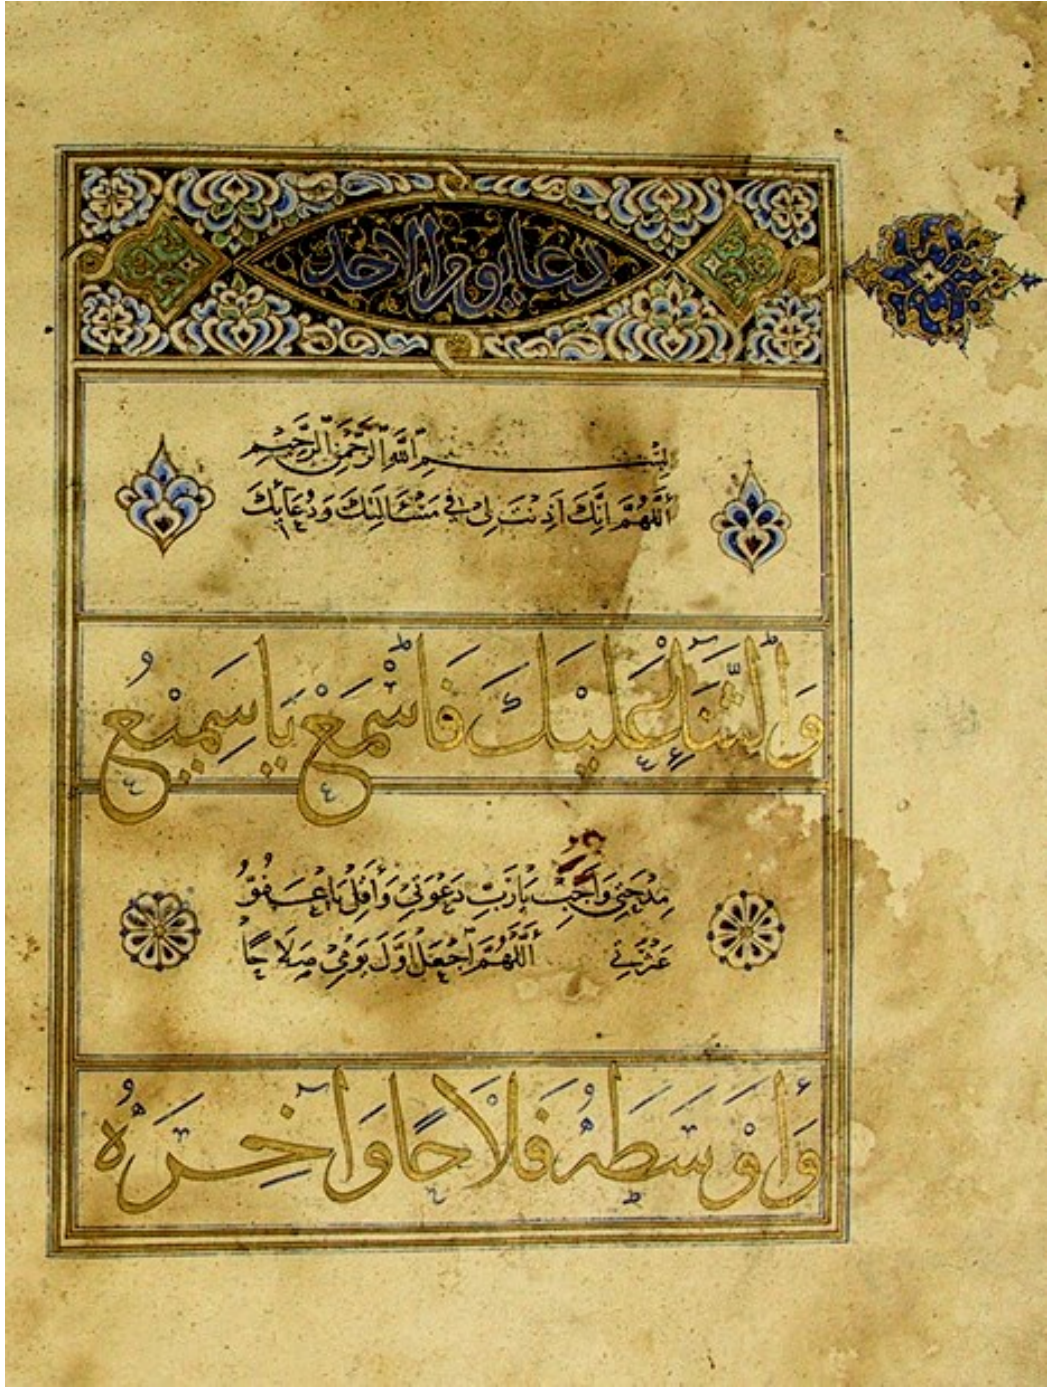 دعا يوم الاحد
بِسْمِ اللَّهِ الرَّحْمَنِ الرَّحِيمِ
أَللَّهُمَّ إِنَّكَ أَذِنْتَ لِي فِي مَسْئَالَتِكَ وَدُعَائِكَ
وَالثَّنَاءِ عَلَيْكَ فَاسْمَعْ يَا سَمِيعُ
مِدْحَتِي وَأَجِبْ يَا رَبِّ دَعْوَتِي وَأَقِلْ يَا عَفُوُّ
عَثْرَتِي أَللَّهُمَّ اجْعَلْ أَوَّلَ يَوْمِي صَلَاحًا
وَأَوْسَطَهُ فَلَاحًا وَآخِرَهُ